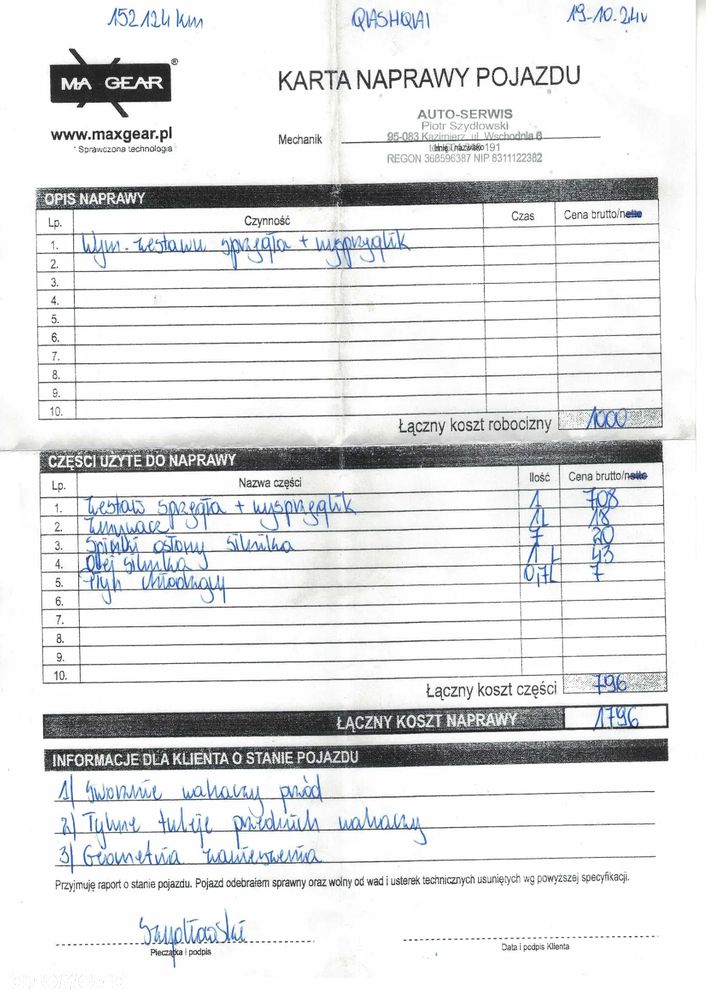 152124 km QIASHQIAI 19-10.24r
MA GEAR ®
www.maxgear.pl
* Sprawdzona technologia
KARTA NAPRAWY POJAZDU
Mechanik
AUTO-SERWIS
Piotr Szydłowski
95-083 Kazimierz, ul. Wschodnia 6
Imię i nazwisko 191
REGON 368596387 NIP 8311122382
OPIS NAPRAWY
Lp. Czynność Czas Cena brutto/netto
1. Wym. zestawu sprzęgła + wysprzęglik
2.
3.
4.
5.
6.
7.
8.
9.
10.
Łączny koszt robocizny 1000
CZĘŚCI UŻYTE DO NAPRAWY
Lp. Nazwa części Ilość Cena brutto/netto
1. Zestaw sprzęgła + wysprzęglik 1 708
2. Zmywacz 1L 18
3. Spinki osłony silnika 7 20
4. Olej silnika 1L 43
5. Płyn chłodzący 0,7L 7
6.
7.
8.
9.
10.
Łączny koszt części 796
ŁĄCZNY KOSZT NAPRAWY 1796
INFORMACJE DLA KLIENTA O STANIE POJAZDU
1) Sworznie wahaczy przód
2) Tylne tuleje przednich wahaczy
3) Geometria zawieszenia
Przyjmuję raport o stanie pojazdu. Pojazd odebrałem sprawny oraz wolny od wad i usterek technicznych usuniętych wg powyższej specyfikacji.
Szydłowski
Pieczątka i podpis Data i podpis Klienta